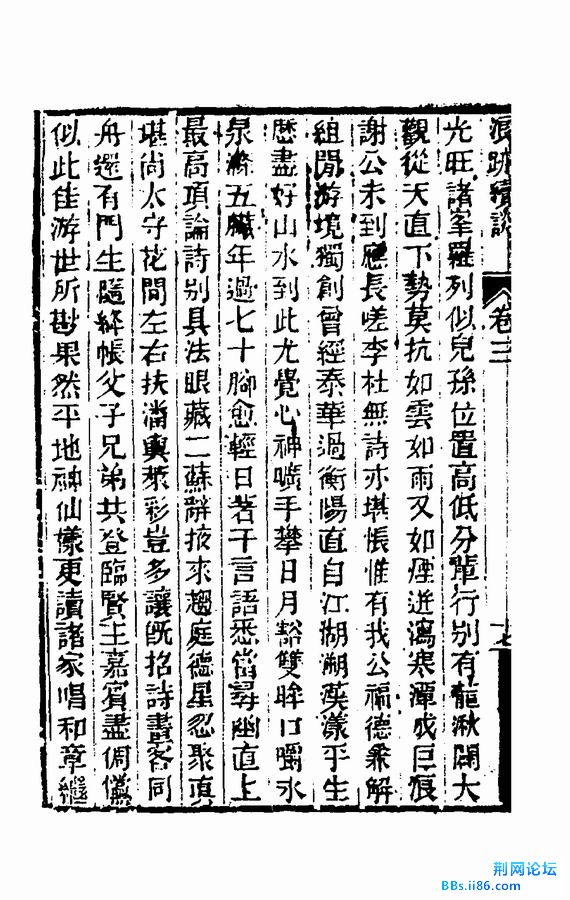 浪跡續談 卷三 十七
光旺諸峯羅列似兒孫位置高低分輩行别有龍湫闢大
觀從天直下勢莫抗如雲如雨又如煙迸瀉寒潭成巨痕
謝公未到應長嗟李杜無詩亦堪悵惟有我公福德兼解
組閒游境獨創曾經泰華過衡陽直自江湖溯漢漾乎生
歷盡好山水到此尤覺心神曠手攀日月豁雙眸口嚼水
泉滌五臟年過七十腳愈輕日著千言語悉當尋幽直上
最高項論詩别具法眼藏二蘇辭掖來趨庭德星忽聚真
堪尚太守花間左右扶潘輿萊彩豈多讓旣招詩畫客同
舟還有門生隨絳帳父子兄弟共登臨賢主嘉賓盡倜儻
似此佳游世所尠果然平地神仙樣更讀諸家唱和章繼
荆网论坛
BBs.ii86.com